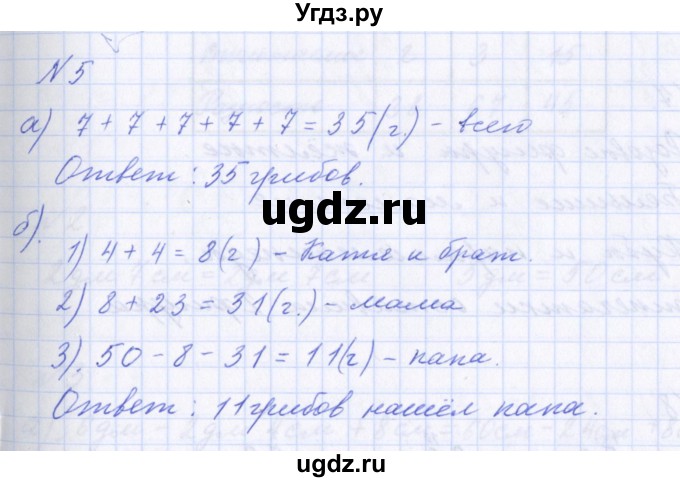 Угдз.ру
№5
а) 7 + 7 + 7 + 7 + 7 = 35(г.) - всего
Ответ: 35 грибов.
ugdz.ru
б).
1) 4 + 4 = 8(г) - Катя и брат.
2) 8 + 23 = 31(г.) - мама
3). 50 - 8 - 31 = 11(г) - папа.
Ответ: 11 грибов нашёл папа.
ugdz.ru